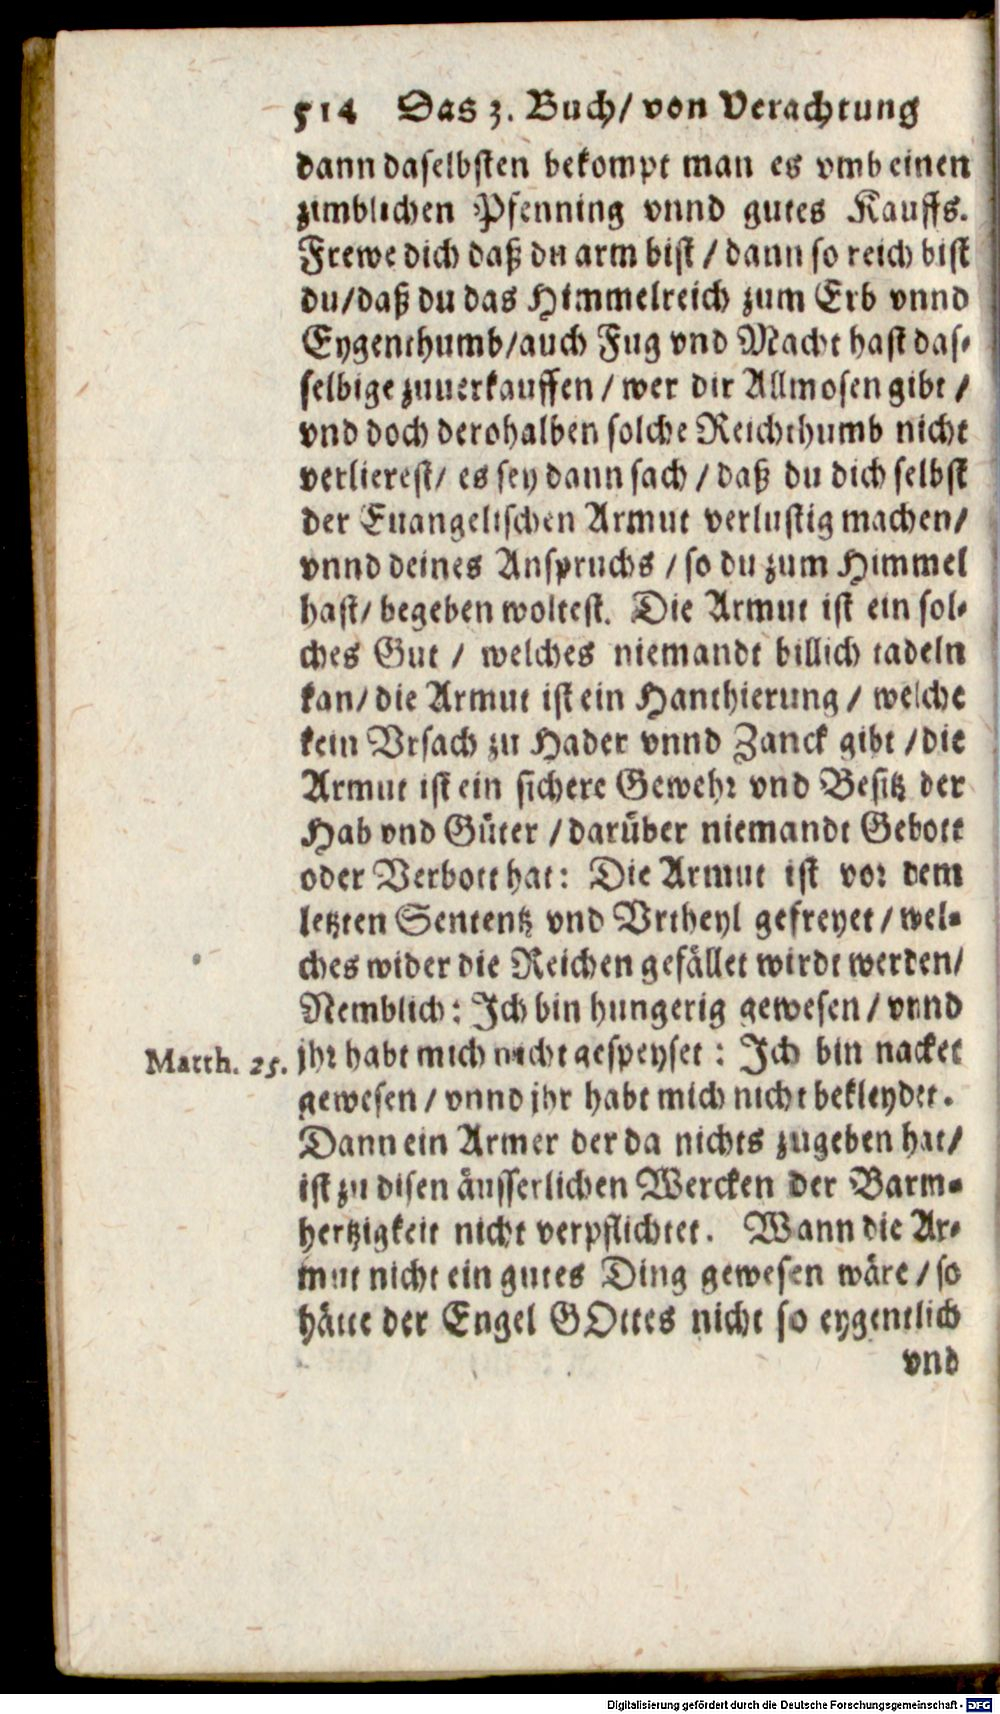 514 Das 3. Buch/ von Verachtung
dann daselbsten bekompt man es vmb einen
zimblichen Pfenning vnnd gutes Kauffs.
Frewe dich daß du arm bist / dann so reich bist
du/daß du das Himmelreich zum Erb vnnd
Eygenthumb/auch Fug vnd Macht hast das-
selbige zuuerkauffen / wer dir Allmosen gibt /
vnd doch derohalben solche Reichthumb nicht
verlierest/ es sey dann sach / daß du dich selbst
der Euangelischen Armut verlustig machen/
vnnd deines Anspruchs / so du zum Himmel
hast/ begeben woltest. Die Armut ist ein sol-
ches Gut / welches niemandt billich tadeln
kan/ die Armut ist ein Hanthierung / welche
kein Vrsach zu Hader vnnd Zanck gibt / die
Armut ist ein sichere Gewehr vnd Besitz der
Hab vnd Güter / darüber niemandt Gebott
oder Verbott hat: Die Armut ist vor dem
letzten Sententz vnd Vrtheyl gefreyet / wel-
ches wider die Reichen gefället wirdt werden/
Nemblich: Ich bin hungerig gewesen / vnnd
Matth. 25. jhr habt mich nicht gespeyset : Ich bin nacket
gewesen / vnnd jhr habt mich nicht bekleydet.
Dann ein Armer der da nichts zugeben hat/
ist zu disen äusserlichen Wercken der Barm-
hertzigkeit nicht verpflichtet. Wann die Ar-
mut nicht ein gutes Ding gewesen wäre / so
hätte der Engel GOttes nicht so eygentlich
vnd
Digitalisierung gefördert durch die Deutsche Forschungsgemeinschaft - DFG